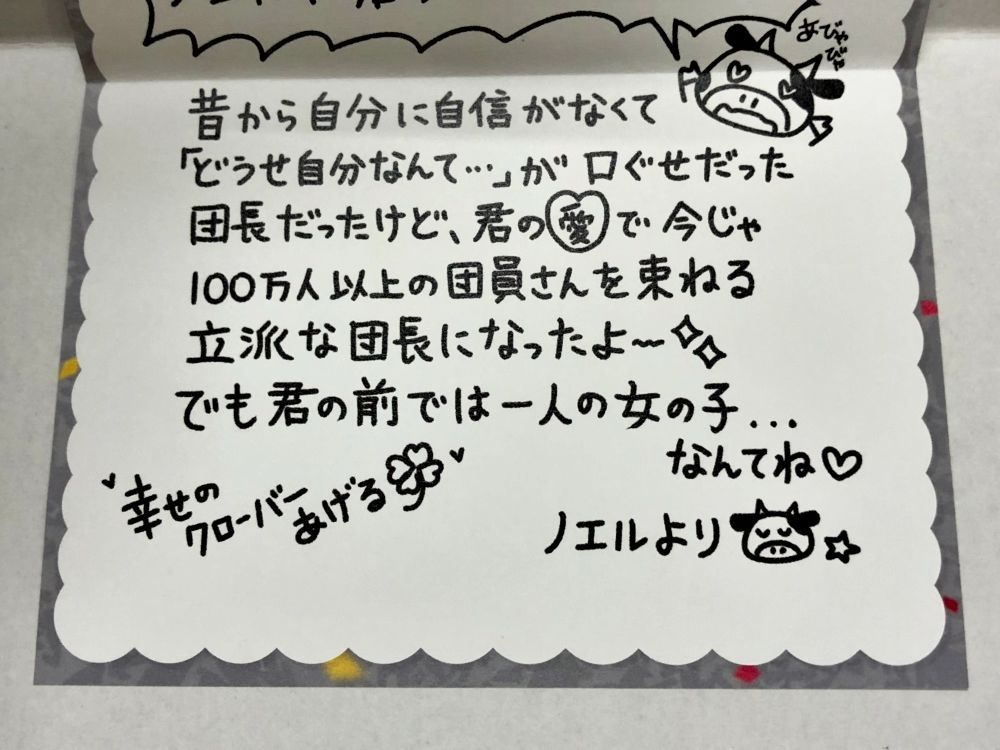 あびゃ
びゃ
昔から自分に自信がなくて
「どうせ自分なんて…」が口ぐせだった
団長だったけど、君の愛で今じゃ
100万人以上の団員さんを束ねる
立派な団長になったよ〜
でも君の前では一人の女の子...
なんてね♡
幸せの
クローバー
あげる
ノエルより☆